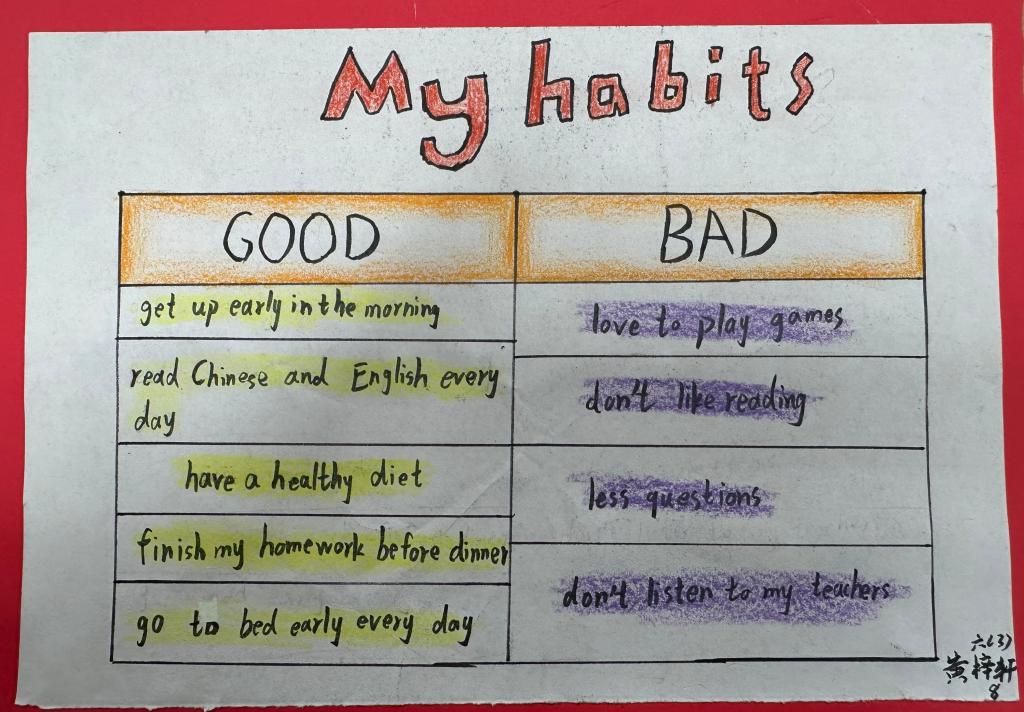 My habits
GOOD
BAD
get up early in the morning
love to play games
read Chinese and English every
day
don't like reading
have a healthy diet
less questions
finish my homework before dinner
don't listen to my teachers
go to bed early every day
六(3)
黄梓轩
8